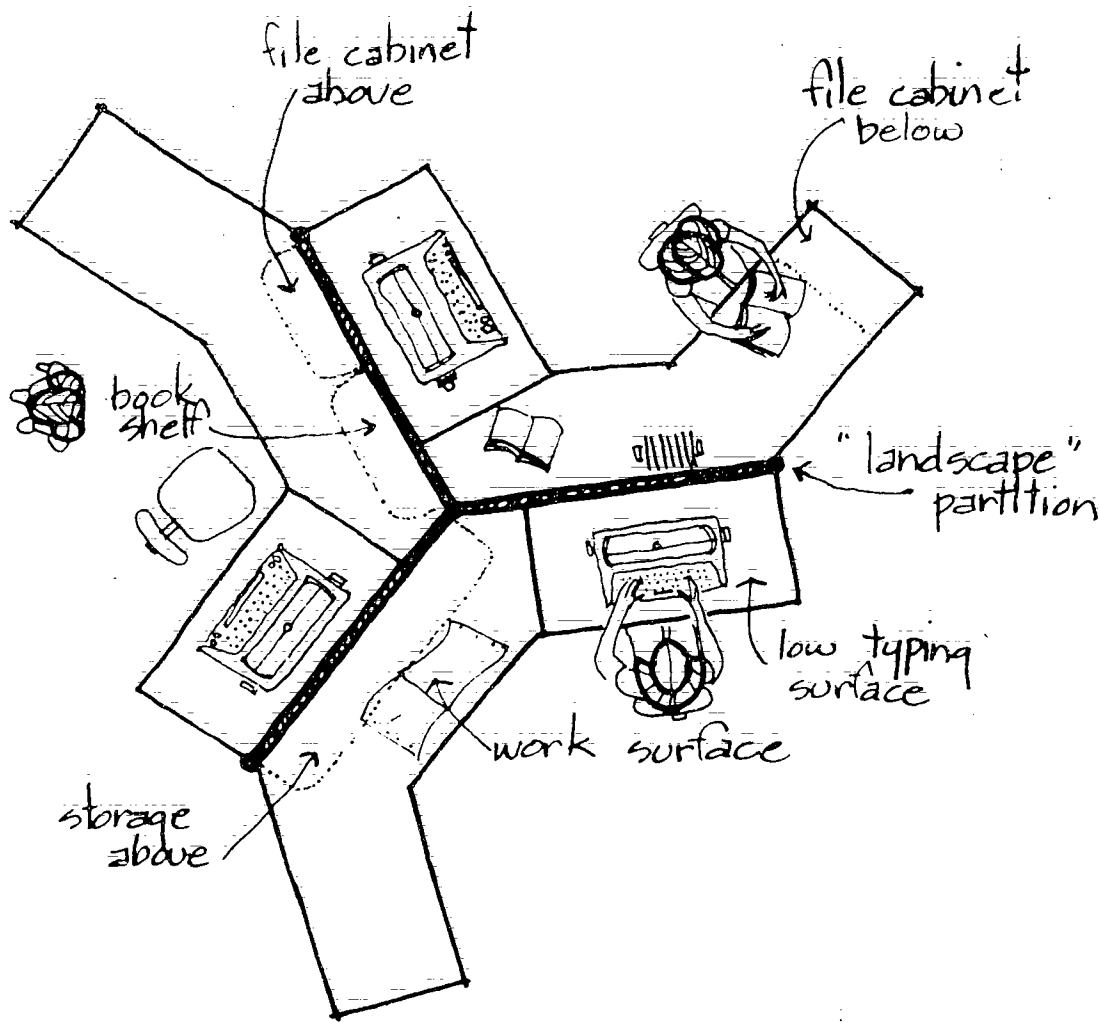 file cabinet
above
file cabinet
below
book
shelf
"landscape"
partition
low typing
surface
work surface
storage
above